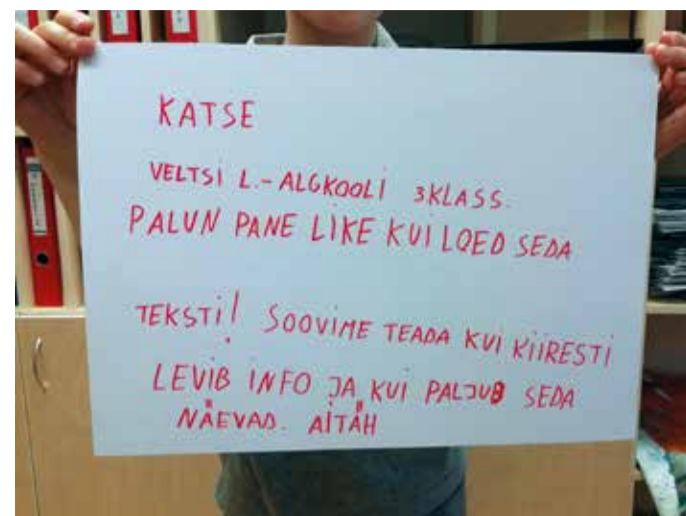 KATSE
VELTSI L.-ALGKOOLI 3KLASS.
PALUN PANE LIKE KUI LOED SEDA
TEKSTI! SOOVIME TEADA KUI KIIRESTI
LEVIB INFO JA KUI PALJUD SEDA
NÄEVAD. AITÄH